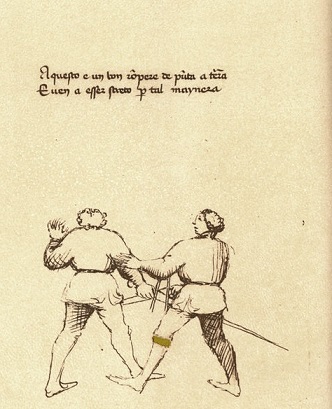 Aquesto e un bon rōpere de pūta a tēra
E uen a esser fereto p tal maynera